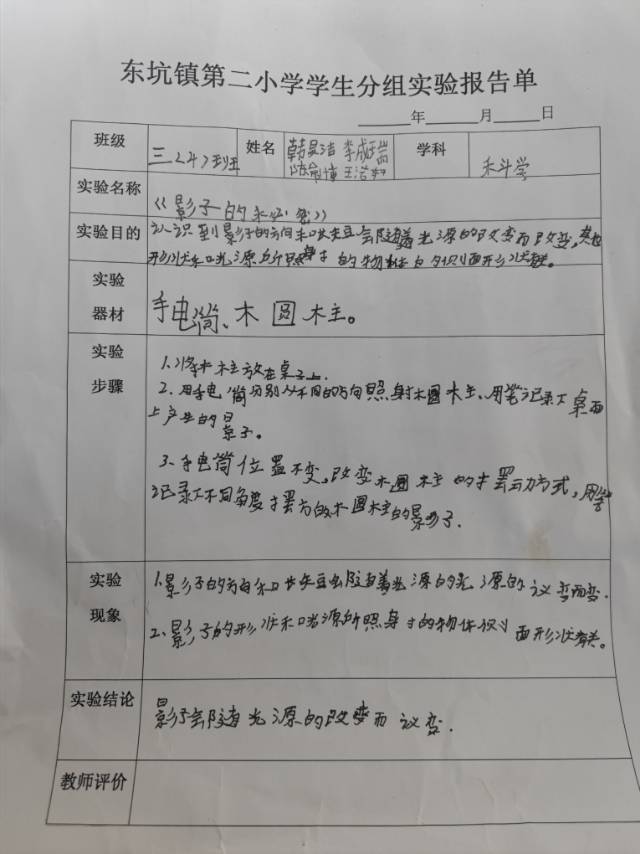 东坑镇第二小学学生分组实验报告单
年 月 日
班级 三(4)班 姓名 学科 科学
王浩
实验名称 《影子的秘密》
实验目的 认识到影子的方向和长短会随着光源的改变而改变,
形状和光源所照射的物体的侧面形状有关。
实验
器材
手电筒、木圆柱。
实验
步骤
1.将木柱放在桌子上.
2.用手电筒分别从不同的方向照射木圆柱、用笔记录下桌面
上产生的影子。
3、手电筒位置不变,改变木圆柱的摆动方式,用笔
记录下不同角度摆方的木圆柱的影子.
实验
现象
1.影子的方向和长短会随着光源的光源的改变而变.
2.影子的形状和光源所照射的物体侧面形状有关。
实验结论 影子会随着光源的改变而改变.
教师评价